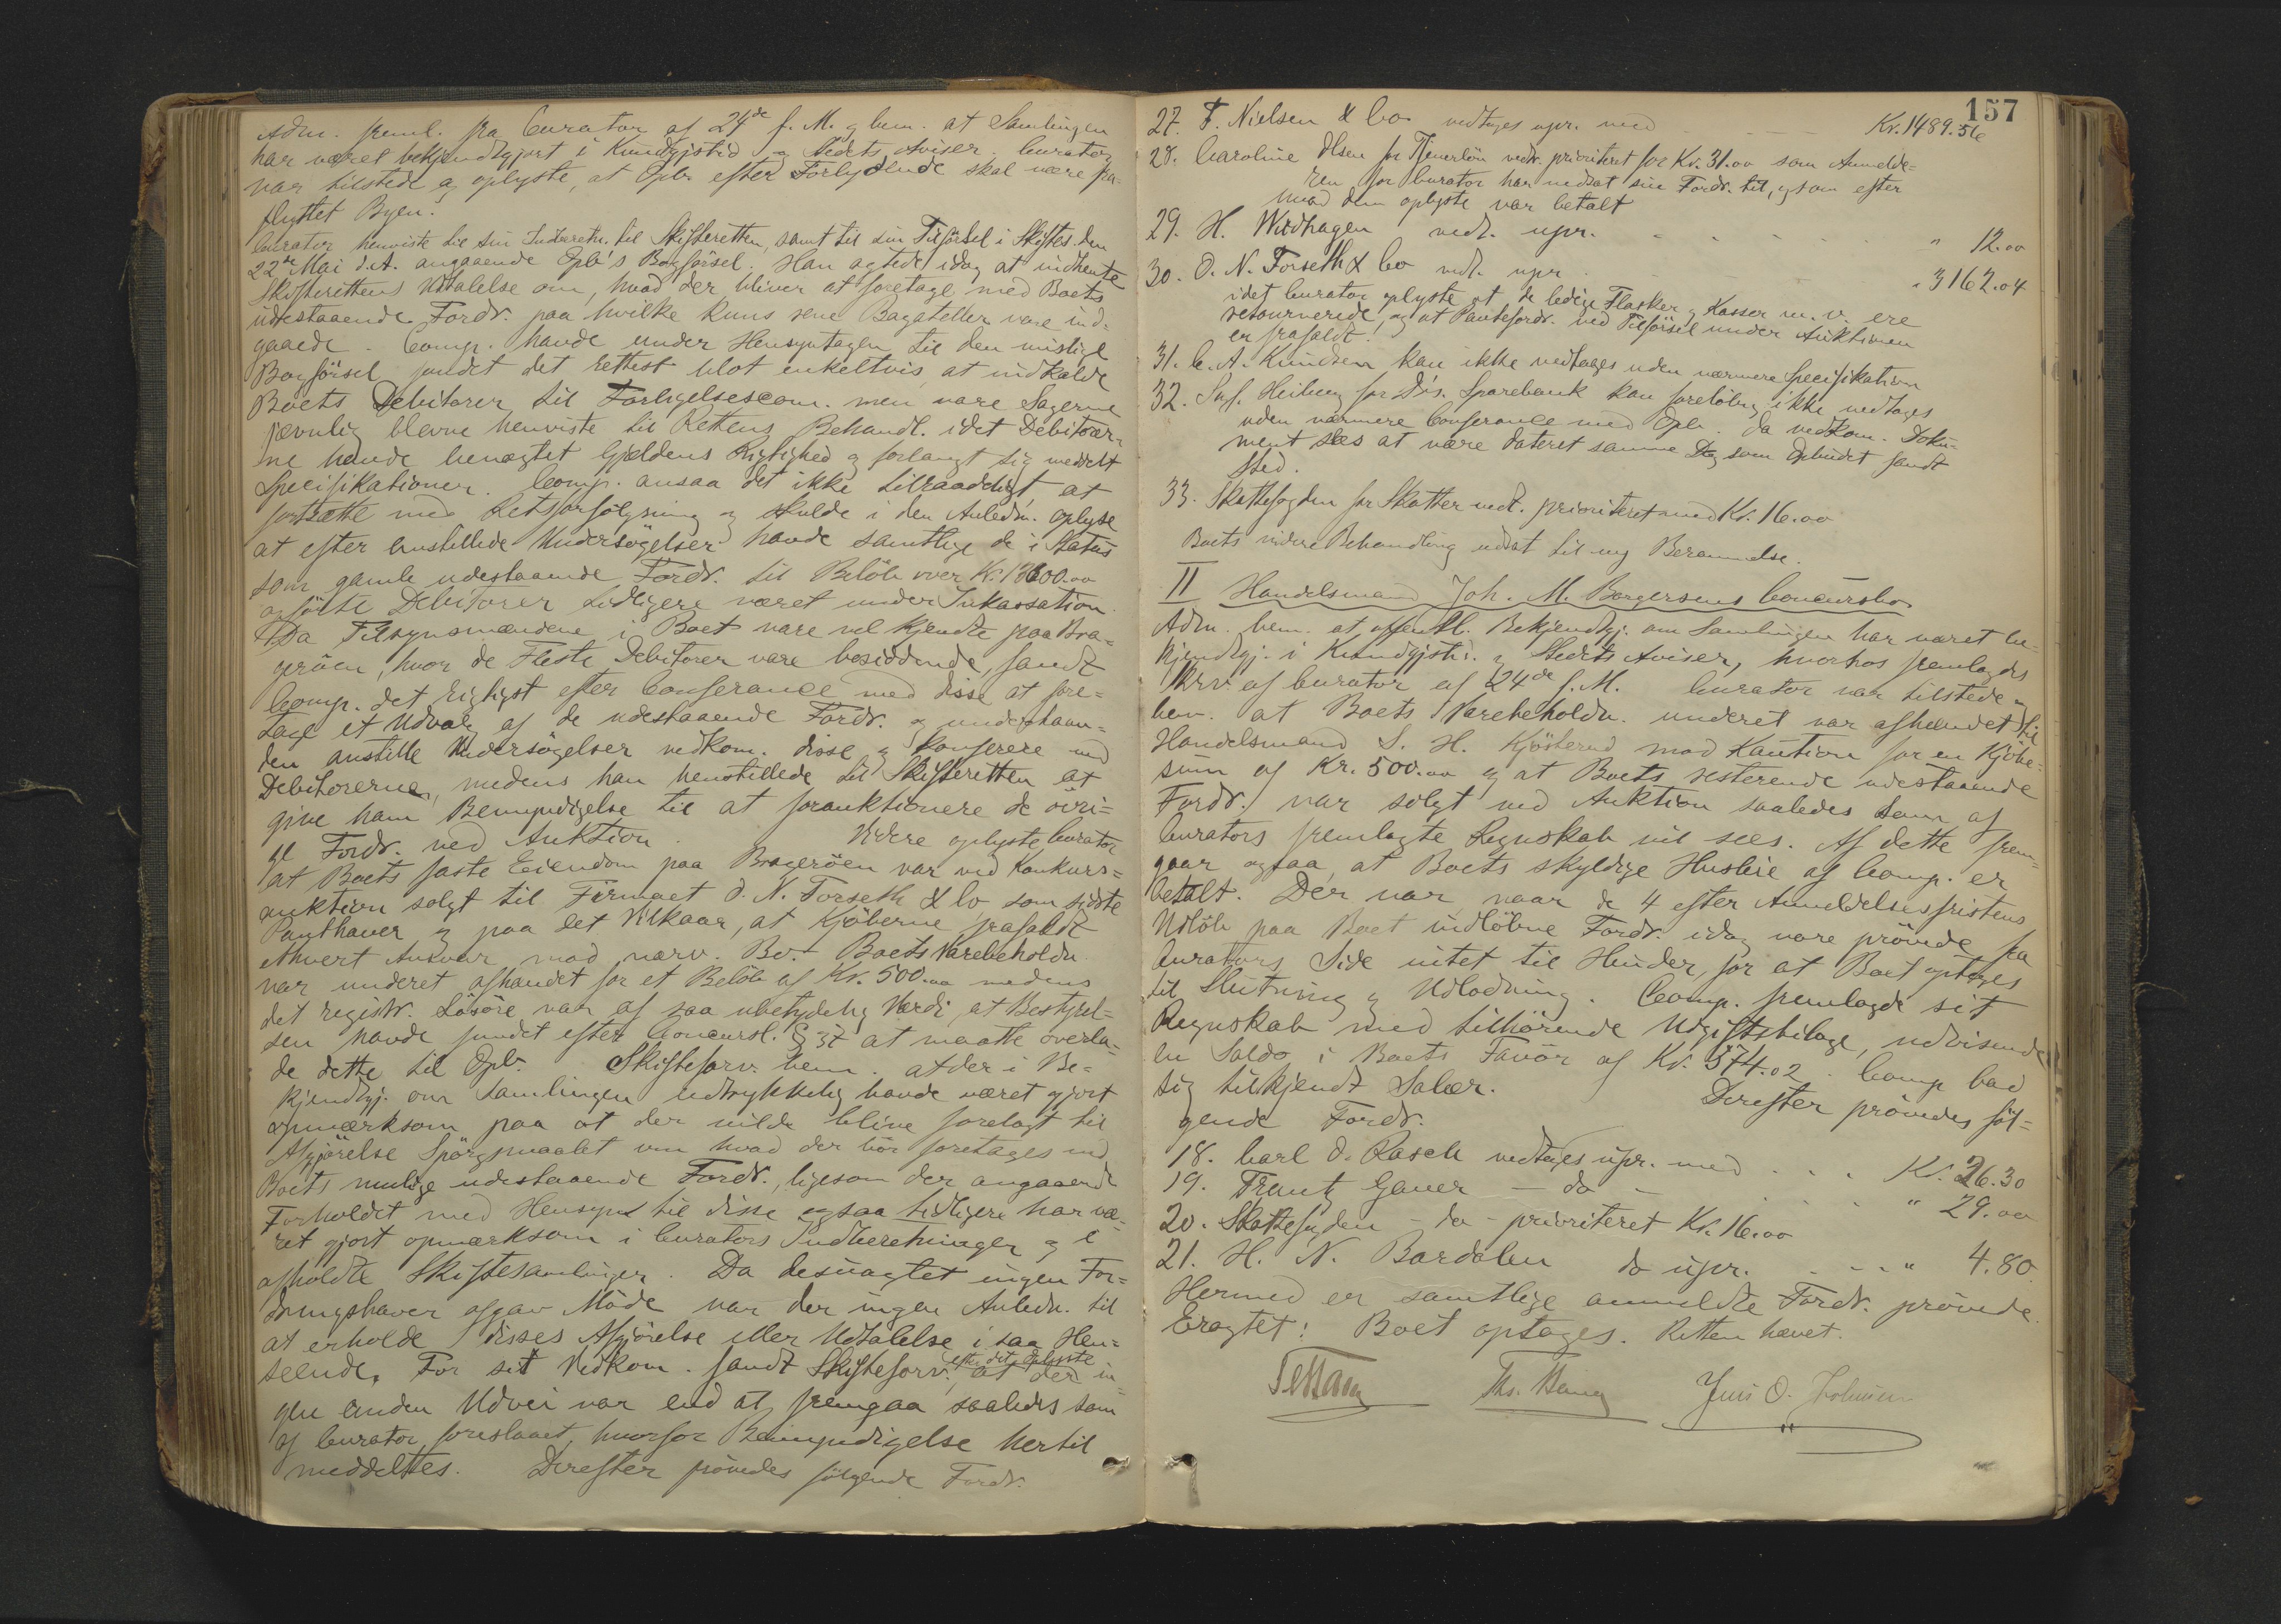 Adm. freml. fra Curator af 24de f. M. & bem. at Samlingen
har været bekjendtgjort i Kundgjstid. og Stedets Aviser. Curator
var tilstede og oplyste, at Opb. efter Forlydende skal være fra-
flyttet Byen.
Curator henviste til sin Indberetn. til Skifteretten, samt til sin Tilførsel i Skiftes. den
22de Mai d. A. angaaende Opb's Bogførsel. Han agtede idag at indhente
Skifterettens Udtalelse om, hvad der bliver at foretage med Boets
udestaaende Fordr. paa hvilke kuns rene Bagateller vare ind-
gaaede. Comp. havde under Hensyntagen til den mislige
Bogførsel fundet det rettest blot enkeltvis at indkalde
Boets Debitorer til Forligelsescom. men vare Sagerne
jævnlig blevne henviste til Rettens Behandl. idet Debitorer-
ne havde benægtet Gjældens Rigtighed og forlangt sig meddelt
Specifikationer. Comp. ansaa det ikke tilraadeligt at
fortsætte med Retsforfølgning og skulde i den Anledn. oplyse
at efter anstillede Undersøgelser havde samtlige de i Status
som gamle udestaaende Fordr. til Beløb over Kr. 13600.00
opførte Debitorer tidligere været under Inkassation.
Da Tilsynsmændene i Boet vare vel kjendte paa Bra-
gerøen, hvor de Fleste Debitorer vare bosiddende, fandt
Comp. det rigtigst efter Conferance med disse at fore-
tage et Udvalg af de udestaaende Fordr. og underhaan-
den anstille Undersøgelser vedkom. disse og konferere med
Debitorerne, medens han henstillede til Skifteretten at
give ham Bemyndigelse til at forauktionere de övri-
ge Fordr. ved Auktion. Videre oplyste Curator
at Boets faste Eiendom paa Bragerøen var ved Konkurs-
auktion solgt til Firmaet O. N. Forseth & Co som sidste
Panthaver og paa det Vilkaar, at Kjøberne frafaldt
ethvert Ansvar mod nærv. Bo. - Boets Varebeholdn.
var underet afhændet for et Beløb af Kr. 500.00 medens
det registr. Løsøre var af saa ubetydelig Værdi, at Bestyrel-
sen havde fundet efter Concursl. § 37 at maatte overla-
de dette til Opb. Skifteforv. bem. at der i Be-
kjendtgj. om Samlingen udtrykkelig havde været gjort
opmærksom paa at der vilde blive forelagt til
Afgjørelse Spørgsmaalet om hvad der bør foretages med
Boets mulige udestaaende Fordr., ligesom der angaaende
Forholdet med Hensyn til disse ogsaa tidligere har væ-
ret gjort opmærksom i Curators Indberetninger og i
afholdte Skiftesamlinger. Da desuagtet ingen For-
dringshaver afgav Møde var der ingen Anledn. til
at erholde disses Afgjørelse eller Udtalelse i saa Hen-
seende. For sit Vedkom. fandt Skifteforv. efter det oplyste at der in-
gen anden Udvei var end at fremgaa saaledes som
af Curator foreslaaet, hvorfor Bemyndigelse hertil
meddeltes. Derefter prøvedes følgende Fordr.
157
27. F. Nielsen & Co. vedtages upr. med Kr. 1489.56
28. Caroline Olsen for Tjenerløn vedt. prioriteret for Kr. 31.00 som Anmelde-
ren for Curator har nedsat sin Fordr. til, og som efter
hvad den oplyste var betalt
29. H. Widhagen vedt. upr. " 12.00
30. O. N. Forseth & Co vedt. upr. " 3162.04
idet Curator oplyste at de ledige Flasker og Kasser m. v. ere
retournerede, og at Pantefordr. ved Tilførsel under Auktionen
er frafaldt.
31. C. A. Knudsen kan ikke vedtages uden nærmere Specifikation
32. Sagf. Heiberg for D's. Sparebank kan foreløbig ikke vedtages
uden nærmere Conferance med Opb. da vedkom. Doku-
ment sees at være dateret samme Dag som Opbudet fandt
Sted.
33. Skattefogden for Skatter vedt. prioriteret med Kr. 16.00
Boets videre Behandling udsat til ny Berammelse.
II Handelsmand Joh. M. Borgersens Concursbo.
Adm. bem. at offentl. Bekjendtgj. om Samlingen har været be-
kjendtgj. i Kundgjstid. og Stedets Aviser, hvorhos fremlagdes
Skrv. af Curator af 24de f. M. Curator var tilstede og
bem. at Boets Varebeholdn. underet var afhændet til
Handelsmand S. H. Kjøsterud mod Kaution for en Kjøbe-
sum af Kr. 500.00 og at Boets resterende udestaaende
Fordr. var solgt ved Auktion saaledes som af
Curators fremlagte Regnskab vil sees. Af dette frem-
gaar ogsaa, at Boets skyldige Husleie af Comp. er
betalt. Der var, naar de 4 efter Anmeldelsesfristens
Udløb paa Boet indløbne Fordr. idag vare prøvede fra
Curators Side intet til Hinder, for at Boet optages
til Slutning og Udlodning. Comp. fremlagde sit
Regnskab med tilhørende Udgiftsbilage, udvisende
en Saldo i Boets Favør af Kr. 574.02. Comp bad
sig tilkjendt Salær. Derefter prøvedes føl-
gende Fordr.
18. Carl O. Rasch vedtages upr. med . . . Kr. 26.30
19. Frantz Gauer - do - " 29.00
20. Skattefogden - do - prioriteret Kr. 16.00
21. H. N. Bardalen do upr. - - - " 4.80
Hermed er samtlige anmeldte Fordr. prøvede.
Eragtet: Boet optages. Retten hævet.
Jens O.